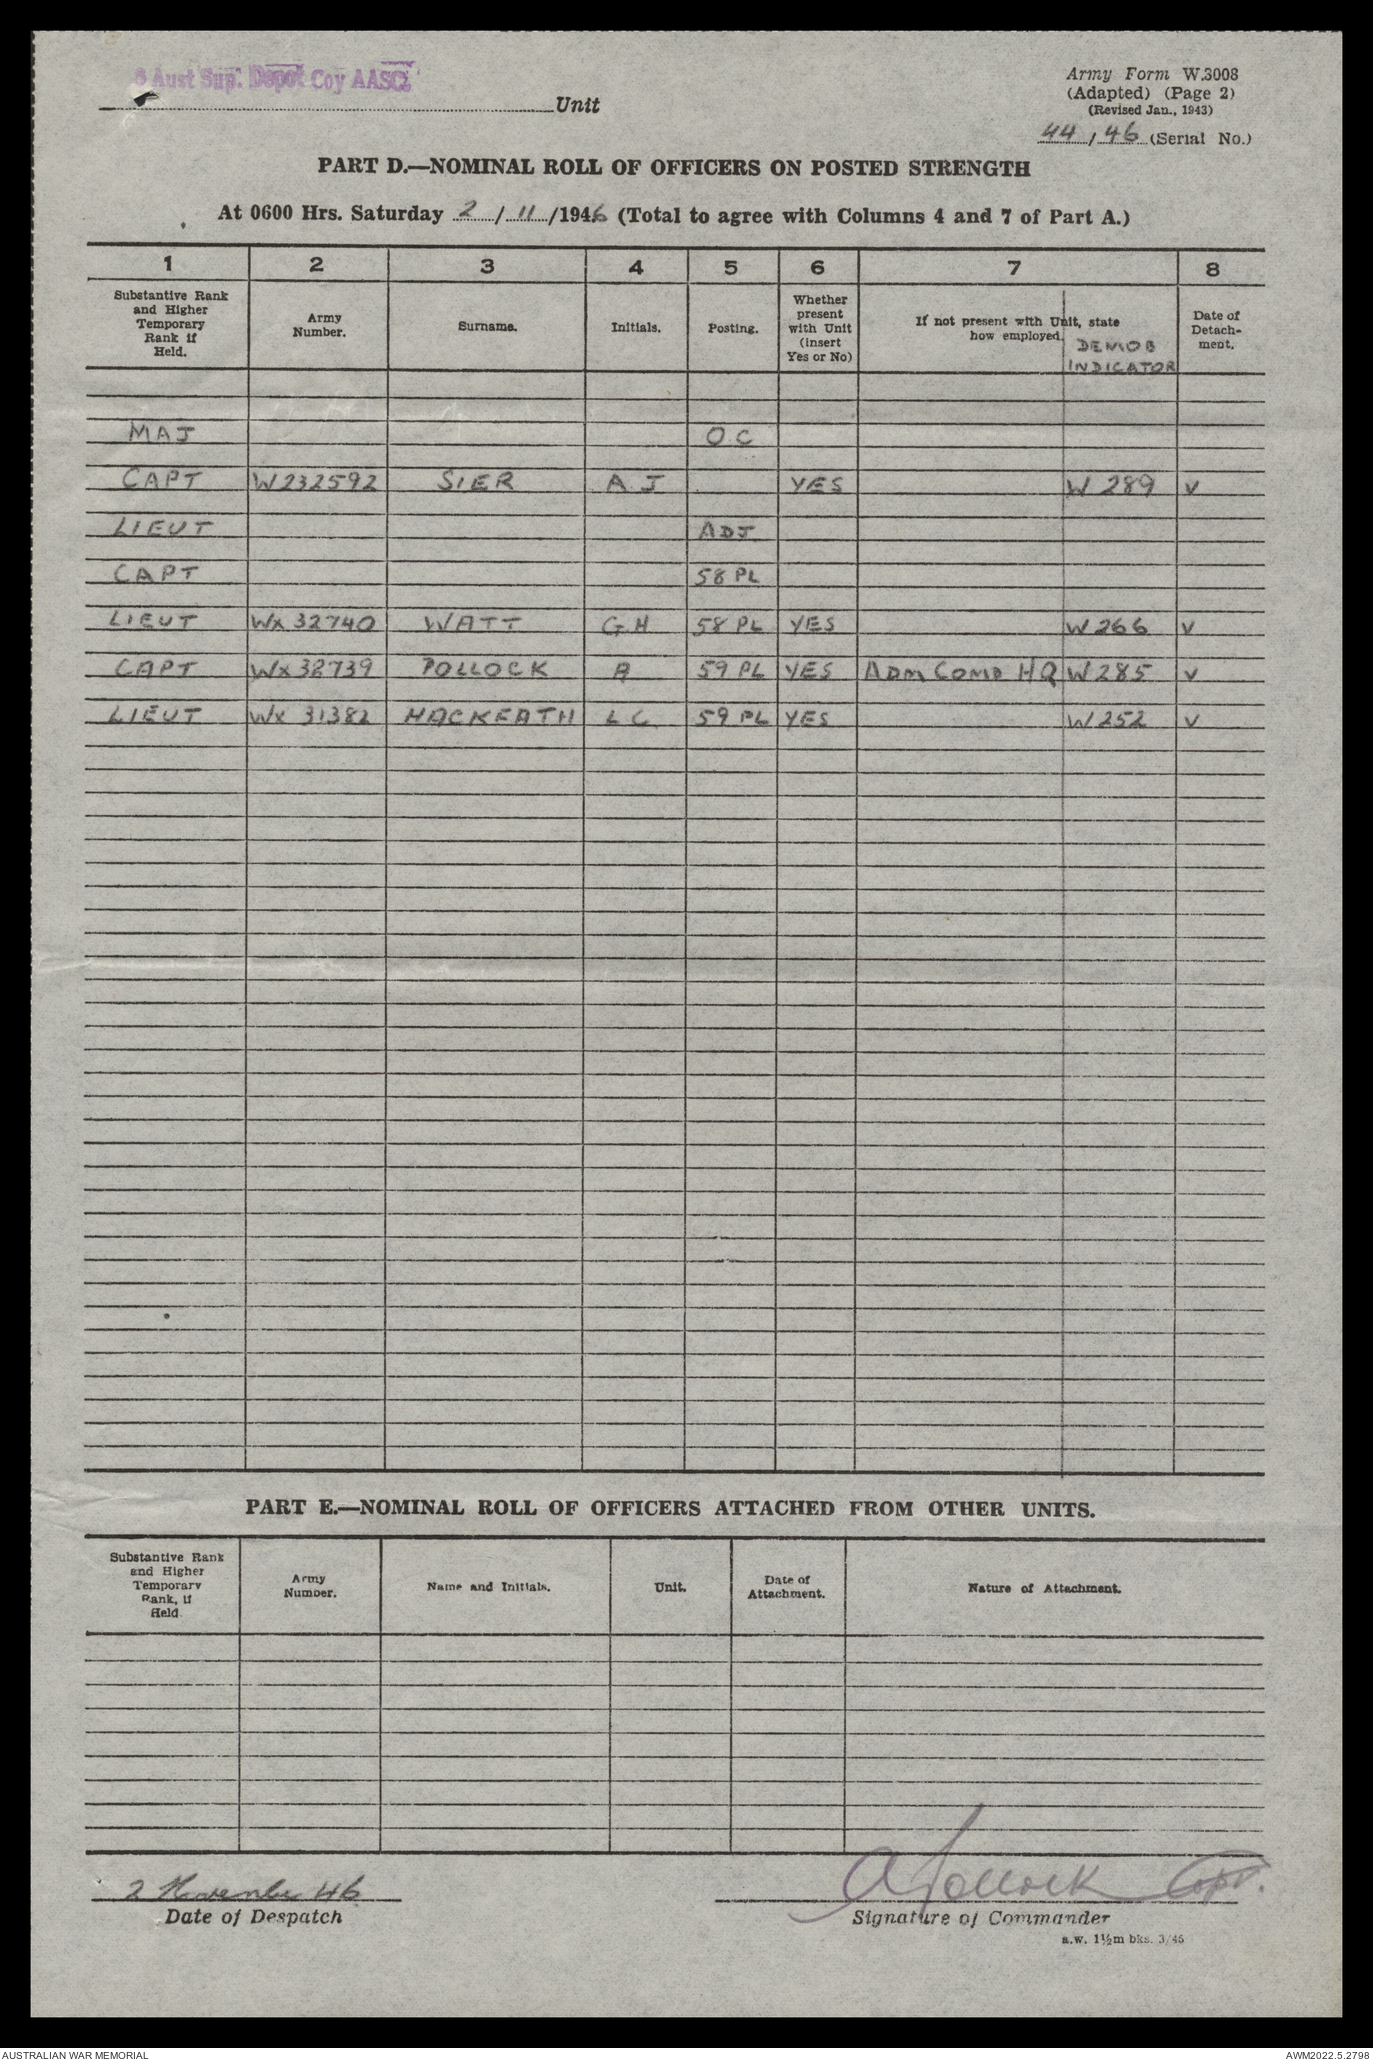 6 Aust Sup. Depot Coy AASC
Unit
Army Form W.3008
(Adapted) (Page 2)
(Revised Jan., 1943)
44 / 46 (Serial No.)
PART D.—NOMINAL ROLL OF OFFICERS ON POSTED STRENGTH
At 0600 Hrs. Saturday 2 / 11 /1946 (Total to agree with Columns 4 and 7 of Part A.)
1 2 3 4 5 6 7 8
Substantive Rank and Higher Temporary Rank if Held.
Army Number.
Surname.
Initials.
Posting.
Whether present with Unit (insert Yes or No)
If not present with Unit, state how employed.
DEMOB INDICATOR
Date of Detach-ment.
MAJ OC
CAPT W232592 SIER A J YES W 289 v
LIEUT ADJ
CAPT 58 PL
LIEUT Wx 32740 WATT G H 58 PL YES W 266 v
CAPT Wx 32739 POLLOCK A 59 PL YES ADM COMD HQ W 285 v
LIEUT Wx 31382 MACKEATH L C 59 PL YES W 252 v
PART E.—NOMINAL ROLL OF OFFICERS ATTACHED FROM OTHER UNITS.
Substantive Rank and Higher Temporary Rank, if Held.
Army Number.
Name and Initials.
Unit.
Date of Attachment.
Nature of Attachment.
2 November 46
A Pollock Capt.
Date of Despatch
Signature of Commander
a.w. 1½m bks. 3/45
AUSTRALIAN WAR MEMORIAL
AWM2022.5.2798